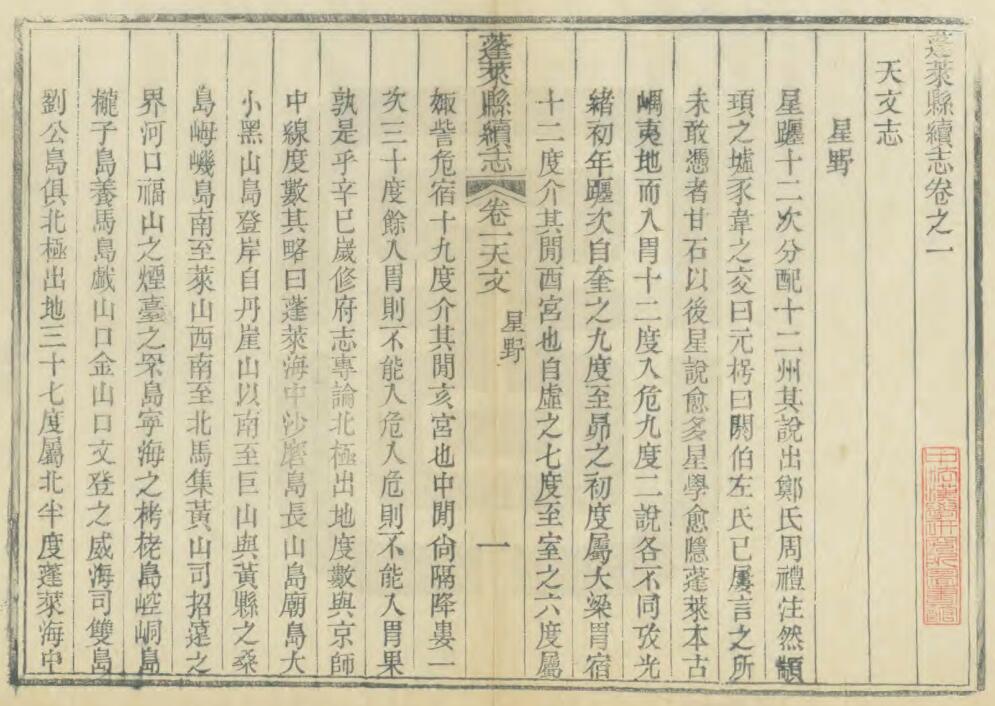 蓬萊縣續志卷之一
天文志
星野
星躔十二次分配十二州其說出鄭氏周禮注然顓
頊之墟豕韋之交曰元枵曰閼伯左氏已屢言之所
未敢憑者甘石以後星說愈多星學愈隱蓬萊本古
嵎夷地而入胃十二度入危九度二說各不同攷光
緒初年躔次自奎之九度至昴之初度屬大梁胃宿
十二度介其閒酉宮也自虛之七度至室之六度屬
蓬萊縣續志
卷一天文
星野
一
娵訾危宿十九度介其閒亥宮也中閒尙隔降婁一
次三十度餘入胃則不能入危入危則不能入胃果
孰是乎辛巳歲修府志專論北極出地度數與京師
中線度數其略曰蓬萊海中沙磨島長山島廟島大
小黑山島登岸自丹崖山以南至巨山與黃縣之桑
島㟂嶼島南至萊山西南至北馬集黃山司招遠之
界河口福山之煙臺之罘島寧海之栲栳島崆峒島
櫳子島養馬島戲山口金山口文登之威海司雙島
劉公島俱北極出地三十七度屬北半度蓬萊海中